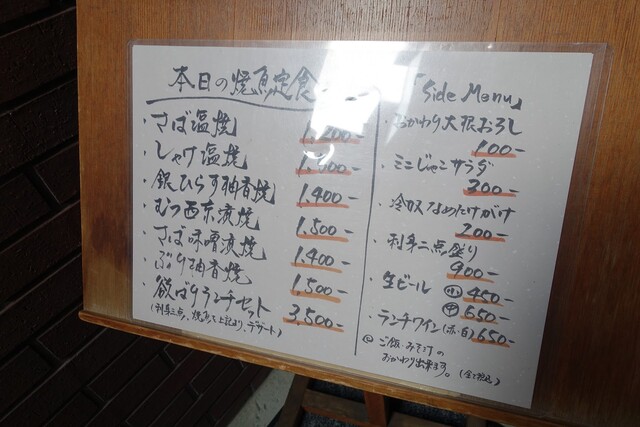 本日の焼魚定食
さば塩焼
しゃけ塩焼
銀ひらす柚香焼 1,400-
むつ西京漬焼 1,500-
さば味噌漬焼 1,400-
ぶり柚香焼 1,500-
欲ばりランチセット 3,500-
(刺身二点、焼魚を上記より、デザート)
「Side Menu」
・おかわり大根おろし
100-
・ミニじゃこサラダ
300-
・冷奴なめたけがけ
200-
・刺身二点盛り
900-
・生ビール 小 450-
中 650-
・ランチワイン(赤・白) 650-
◎ ご飯、みそ汁の
おかわり出来ます。(全て税込)